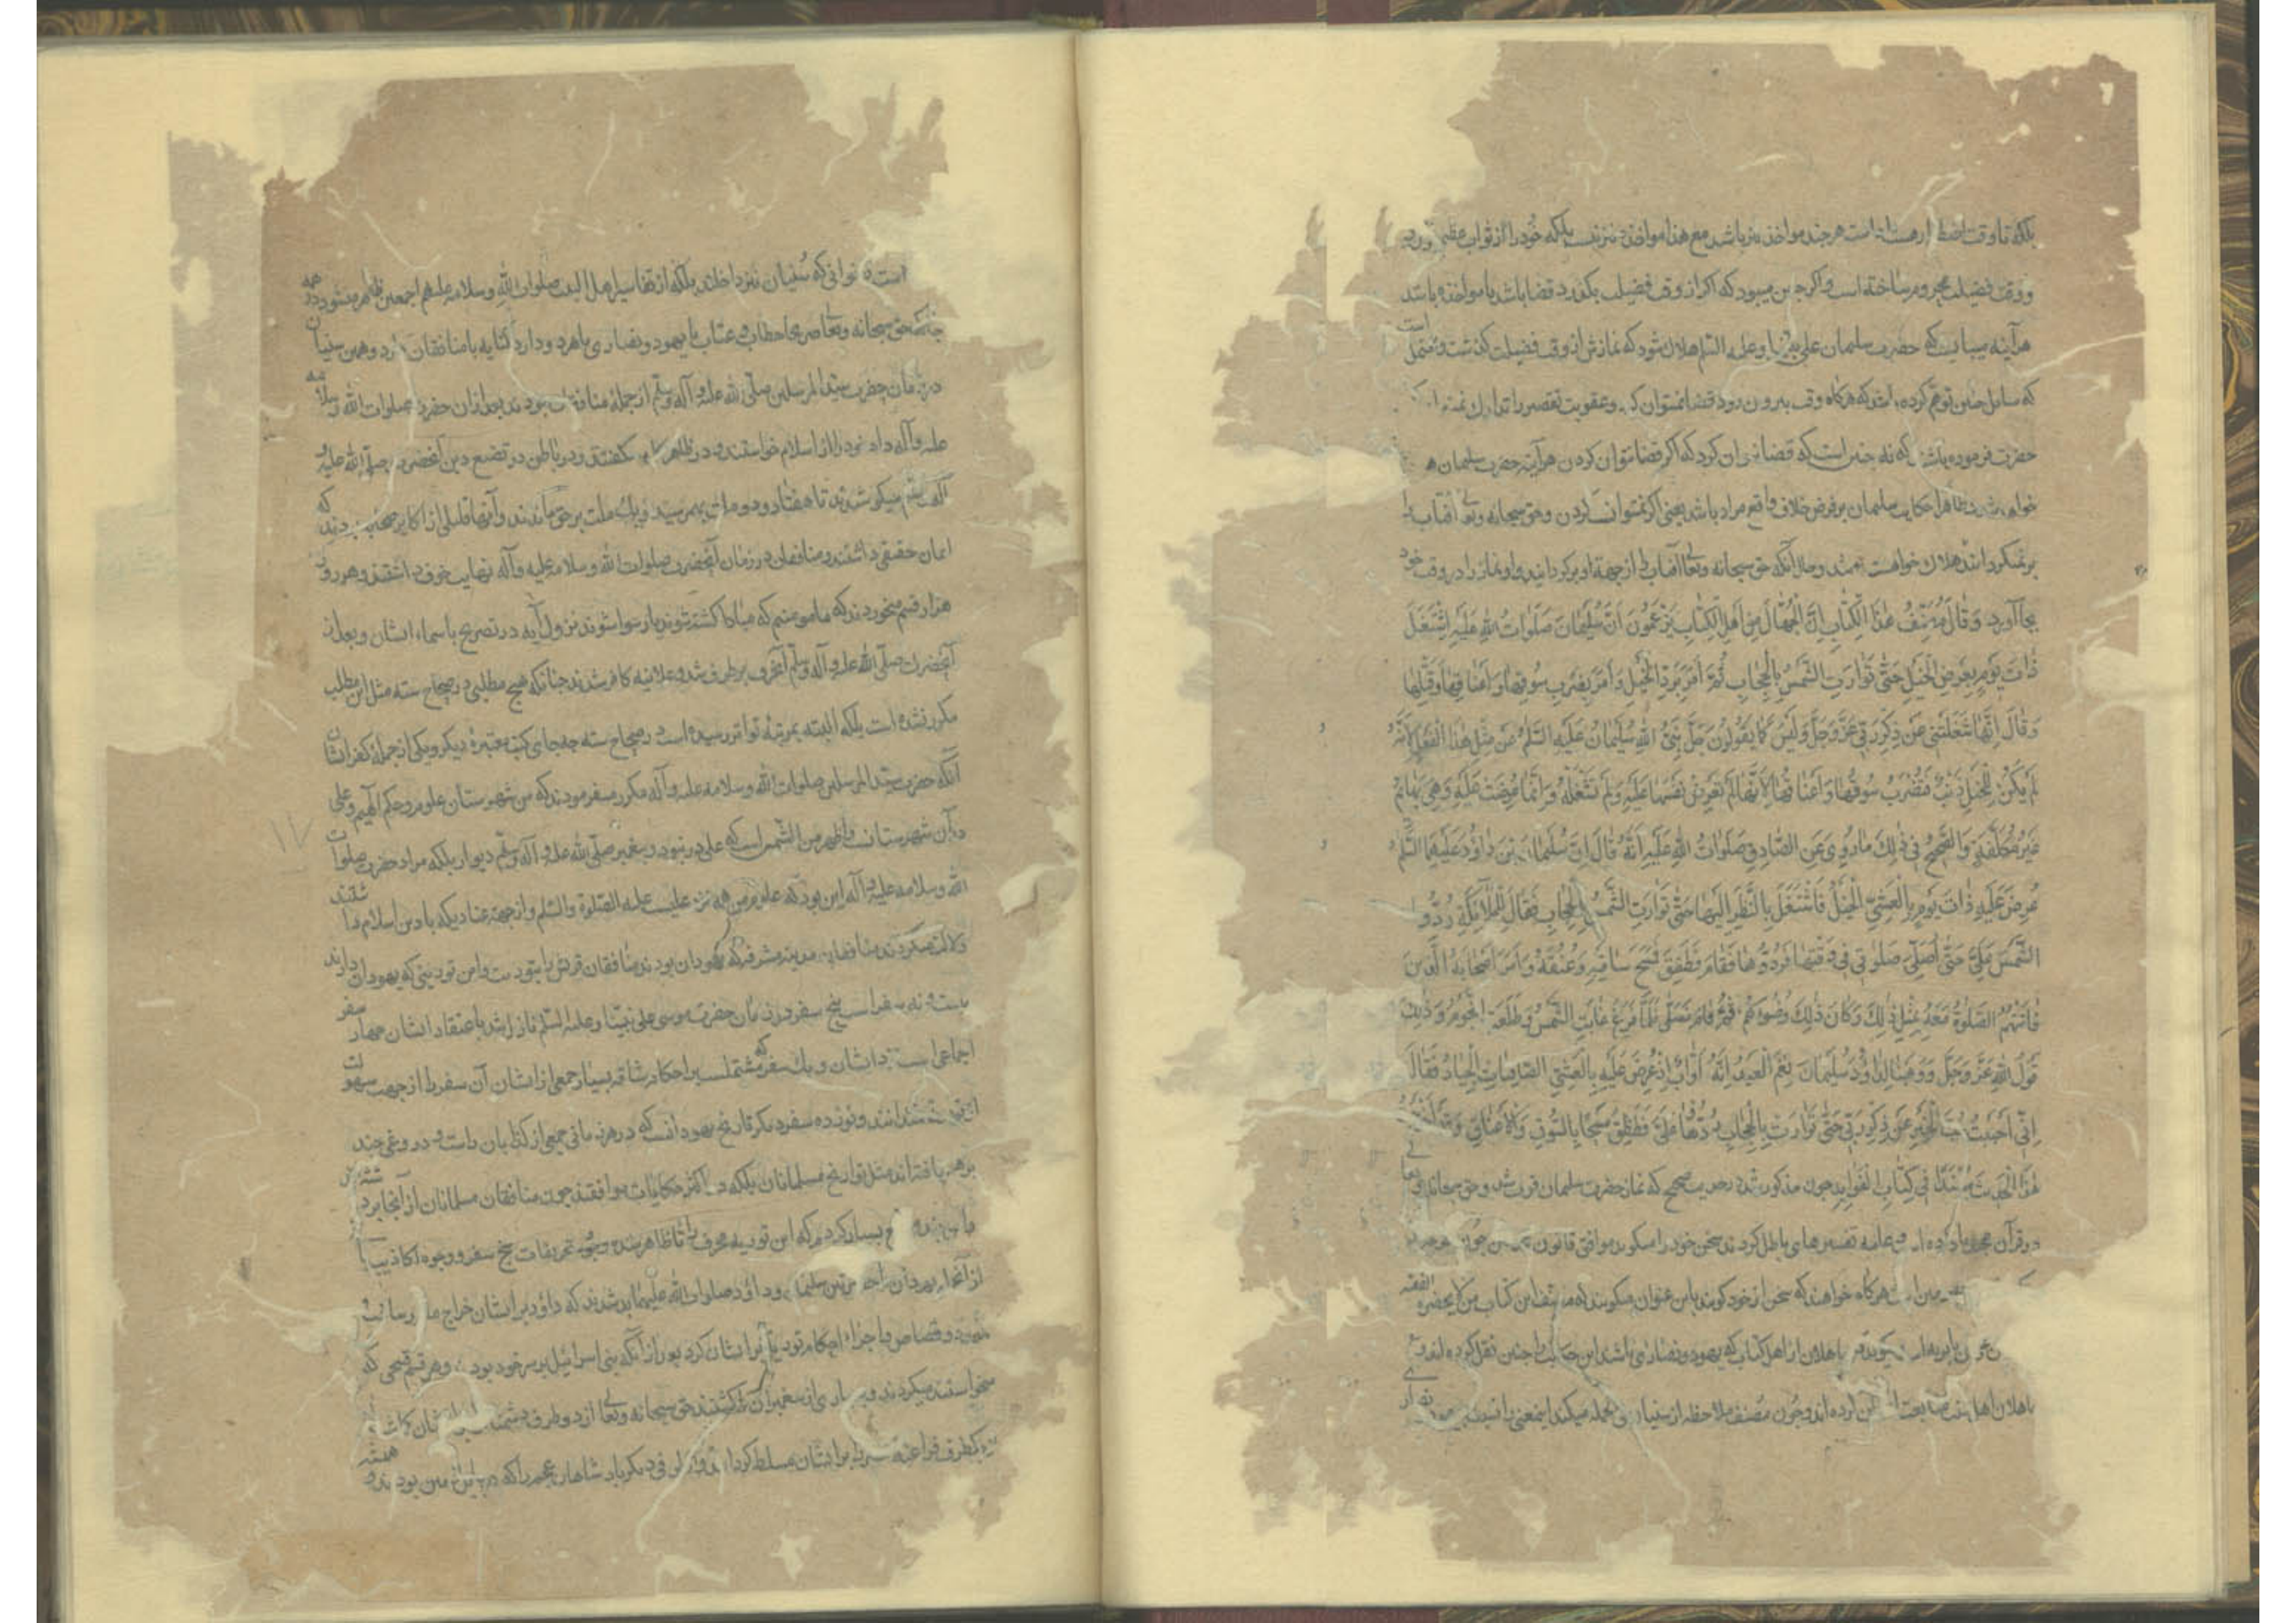 بلکه تا وقت اضطرار مستدام است هر چند مواخذ نیز باشد مع هذا مواخذ نیز نیست بلکه خود را از ثواب عظیم
و وقت فضیلت محروم ساخته است و اگر چنین میبود که اگر از وقت فضیلت بگذرد قضا باشد یا مواخذ باشد
هر آینه میبایست که حضرت سلیمان علی نبینا و علیه السلم هلاک شود که نمازش از وقت فضیلت گذشت و محتمل است
که سایل چنین توهم کرده باشد که هرگاه وقت بیرون رود قضا نمیتوان کرد و عقوبت تقصیر را تدارک
حضرت فرموده باشند که نه چنین است که قضا نتوان کرد که اگر قضا نتوان کردن هر آینه حضرت سلیمان
خواهد شد ظاهرا حکایت سلیمان بر فرض خلاف واقع مراد باشد یعنی اگر نمیتوانست کردن و حق سبحانه و تعالی آفتاب را
بر نمیگردانید هلاک خواست شد و حال آنکه حق سبحانه و تعالی آفتاب را از جهة او برگردانید و او نماز را در وقت خود
بجا آورد وَقَالَ مُصَنِّفُ هٰذَا الْکِتَابِ اِنَّ الْجُهَّالَ مِنْ اَهْلِ الْکِتَابِ یَزْعُمُونَ اَنَّ سُلَیْمَانَ صَلَوَاتُ اللهِ عَلَیْهِ اِشْتَغَلَ
ذَاتَ یَوْمٍ بِعَرْضِ الْخَیْلِ حَتّٰی تَوَارَتِ الشَّمْسُ بِالْحِجَابِ ثُمَّ اَمَرَ بِرَدِّ الْخَیْلِ وَاَمَرَ بِضَرْبِ سُوقِهَا وَاَعْنَاقِهَا وَقَتْلِهَا
وَقَالَ اِنَّهَا شَغَلَتْنِی عَنْ ذِکْرِ رَبِّی عَزَّ وَجَلَّ وَلَیْسَ کَمَا یَقُولُونَ جَلَّ نَبِیُّ اللهِ سُلَیْمَانُ عَلَیْهِ السَّلٰمُ عَنْ مِثْلِ هٰذَا الْفِعْلِ لِاَنَّهُ
لَمْ یَکُنْ لِلْخَیْلِ ذَنْبٌ فَیَضْرِبَ سُوقَهَا وَاَعْنَاقَهَا لِاَنَّهَا لَمْ تَعْرِضْ نَفْسَهَا عَلَیْهِ وَلَمْ تَشْغَلْهُ وَاِنَّمَا عُرِضَتْ عَلَیْهِ وَهِیَ بَهَائِمُ
غَیْرُ مُکَلَّفَةٍ وَالصَّحِیحُ فِی ذٰلِکَ مَا رُوِیَ عَنِ الصَّادِقِ صَلَوَاتُ اللهِ عَلَیْهِ اَنَّهُ قَالَ اِنَّ سُلَیْمَانَ بْنَ دَاوُدَ عَلَیْهِمَا السَّلٰمُ
عُرِضَ عَلَیْهِ ذَاتَ یَوْمٍ بِالْعَشِیِّ الْخَیْلُ فَاشْتَغَلَ بِالنَّظَرِ اِلَیْهَا حَتّٰی تَوَارَتِ الشَّمْسُ بِالْحِجَابِ فَقَالَ لِلْمَلٰائِکَةِ رُدُّوا
الشَّمْسَ عَلَیَّ حَتّٰی اُصَلِّیَ صَلٰوتِی فِی وَقْتِهَا فَرَدُّوهَا فَقَامَ فَطَفِقَ فَمَسَحَ سَاقَیْهِ وَعُنُقَهُ وَاَمَرَ اَصْحَابَهُ الَّذِینَ
فَاتَتْهُمُ الصَّلٰوةُ مَعَهُ بِمِثْلِ ذٰلِکَ وَکَانَ ذٰلِکَ وُضُوءَهُمْ ثُمَّ قَامَ فَصَلّٰی فَلَمَّا فَرَغَ غَابَتِ الشَّمْسُ وَطَلَعَتِ النُّجُومُ وَذٰلِکَ
قَوْلُ اللهِ عَزَّ وَجَلَّ وَوَهَبْنَا لِدَاوُدَ سُلَیْمَانَ نِعْمَ الْعَبْدُ اِنَّهُ اَوَّابٌ اِذْ عُرِضَ عَلَیْهِ بِالْعَشِیِّ الصَّافِنَاتُ الْجِیَادُ فَقَالَ
اِنِّی اَحْبَبْتُ حُبَّ الْخَیْرِ عَنْ ذِکْرِ رَبِّی حَتّٰی تَوَارَتْ بِالْحِجَابِ رُدُّوهَا عَلَیَّ فَطَفِقَ مَسْحًا بِالسُّوقِ وَالْاَعْنَاقِ وَقَدْ اَخْرَجْتُ
هٰذَا الْحَدِیثَ مُسْنَدًا فِی کِتَابِ الْفَوَایِدِ چون مذکور شد در حدیث صحیح که نماز حضرت سلیمان فوت شد و حق سبحانه و تعالی
در قرآن مجید یاد کرده است و عامه تفسیرهای باطل کرده‌اند سخن خود را میگوید موافق قانون
هرگاه خواهند که سخن از خود گویند باین عنوان میگویند که مصنف این کتاب من لا یحضره الفقیه
جاهلان از اهل کتاب که یهود و نصاری باشند این حکایت را چنین نقل کرده‌اند و
جاهلان اهل سنت متابعت ایشان کرده‌اند و چون مصنف ملاحظه از سنیان فی الجمله میکند این معنی را نسبت بیهود و نصاری
است که سنیان نیز داخلند بلکه از تفاسیر اهل البیت صلوات الله و سلامه علیهم اجمعین ظاهر میشود که در همه
چنانکه حق سبحانه و تعالی صریحا خطاب و عتاب با یهود و نصاری یا هر دو دارد کنایه با منافقان دارد و همین سنیان
در زمان حضرت سید المرسلین صلی الله علیه و آله و سلم از جمله منافقان بودند بعد از آن حضرت صلوات الله و سلامه
علیه و آله داد خود را از اسلام خواستند و در ظاهر کلمه گفتند و در باطن در تضییع دین آنحضرت صلی الله علیه و
آله و سلم میکوشیدند تا هفتاد و دو ملت بهمرسید و یک ملت بر حق ماندند و آنها قلیلی از اکابر صحابه بودند که
ایمان حقیقی داشتند و منافقان در زمان آنحضرت صلوات الله و سلامه علیه و آله نهایت خوف داشتند و هر روز
هزار قسم میخوردند که ما مومنیم که مبادا کشته شوند یا رسوا شوند بنزول آیه در تصریح باسماء ایشان و بعد از
آنحضرت صلی الله علیه و آله و سلم آن خوف بر طرف شد و علانیه کافر شدند چنانکه هیچ مطلبی در صحاح سته مثل این مطلب
مکرر نشده است بلکه البته بمرتبهٔ تواتر رسیده است در صحاح سته چه جای کتب معتبرهٔ دیگر و یکی از جملهٔ کفر ایشان
آنکه حضرت سید المرسلین صلوات الله و سلامه علیه و آله مکرر میفرمودند که من شهرستان علوم و حکم الهیم و علی
در آن شهرستانست و اظهر من الشمس است که علی در نبود و پیغمبر صلی الله علیه و آله و سلم دیوار بلکه مراد حضرت صلوات
الله و سلامه علیه و آله این بود که علوم من همه نزد علیست علیه الصلوة و السلم و از جهة عنادیکه با دین اسلام داشتند
دلالت میکردند منافقان مدینه مشرفه که یهودان بودند منافقان قریش را بتوریت و این توریتی که یهودان دارند
بیست و نه سفر است پنج سفر در زمان حضرت موسی علی نبینا و علیه السلم نازل شد باعتقاد ایشان چهار سفر
اجماعی است نزد ایشان و یک سفر که مشتملست بر احکام شاقه بسیار جمعی از ایشان آن سفر را از جهت سهولت
نمیدانند و نوزده سفر دیگر تاریخ یهودانست که در هر زمانی جمعی از کذابان راست و دروغی چند
بر هم بافته‌اند مثل تواریخ مسلمانان بلکه در اکثر حکایات موافقند چون منافقان مسلمانان از آنجا برد
بسیار کردم که این توریه محرف را تا ظاهر شد وجوه تحریفات پنج سفر و وجوه اکاذیب
از آنجا یهودان حضرتین سلیمان و داود صلوات الله علیهما بد شدند که داود بر ایشان خراج
حدود و قصاص و اجراء احکام توریة بر ایشان کرد بعد از آنکه بنی اسرائیل بر سر خود بودند و هر قسم قبحی که
میخواستند میکردند و بسیاری از پیغمبران را کشتند حق سبحانه و تعالی از دو طرف دشمنان بر ایشان گماشت
یکطرف فراعنه را بر ایشان مسلط گردانید و از طرفی دیگر پادشاهان عجم را که در بابل زمین بودند و همیشه